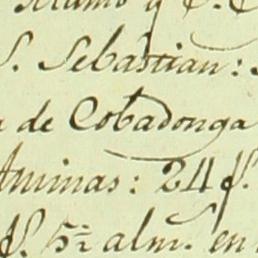 S. Sebastian:
de Cobadonga
Animas: 24 f.
f. 5 rs alm. en